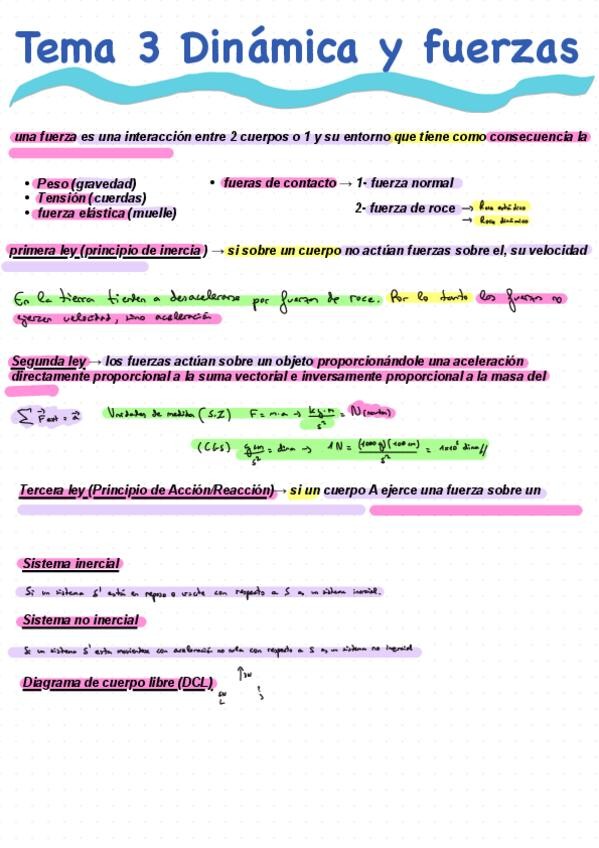 Tema 3 Dinámica y fuerzas
una fuerza es una interacción entre 2 cuerpos o 1 y su entorno que tiene como consecuencia la
• Peso (gravedad)
• Tensión (cuerdas)
• fuerza elástica (muelle)
• fueras de contacto → 1- fuerza normal
2- fuerza de roce → Roce estático
→ Roce dinámico
primera ley (principio de inercia ) → si sobre un cuerpo no actúan fuerzas sobre el, su velocidad
En la tierra tienden a desacelerarse por fuerzas de roce. Por lo tanto las fuerzas no
ejercen velocidad, sino aceleración
Segunda ley → los fuerzas actúan sobre un objeto proporcionándole una aceleración
directamente proporcional a la suma vectorial e inversamente proporcional a la masa del
Σ F ext = a Unidades de medida (S.I) F = m·a → kg·m/s² = N (newton)
(CGS) g·cm/s² = dina → 1N = (1000 g)(100 cm)/s² = 1x10⁵ dina//
Tercera ley (Principio de Acción/Reacción) → si un cuerpo A ejerce una fuerza sobre un
Sistema inercial
Si un sistema S' está en reposo o v=cte con respecto a S es un sistema inercial.
Sistema no inercial
Si un sistema S' esta moviendose con aceleración no nula con respecto a S es un sistema no inercial
Diagrama de cuerpo libre (DCL)